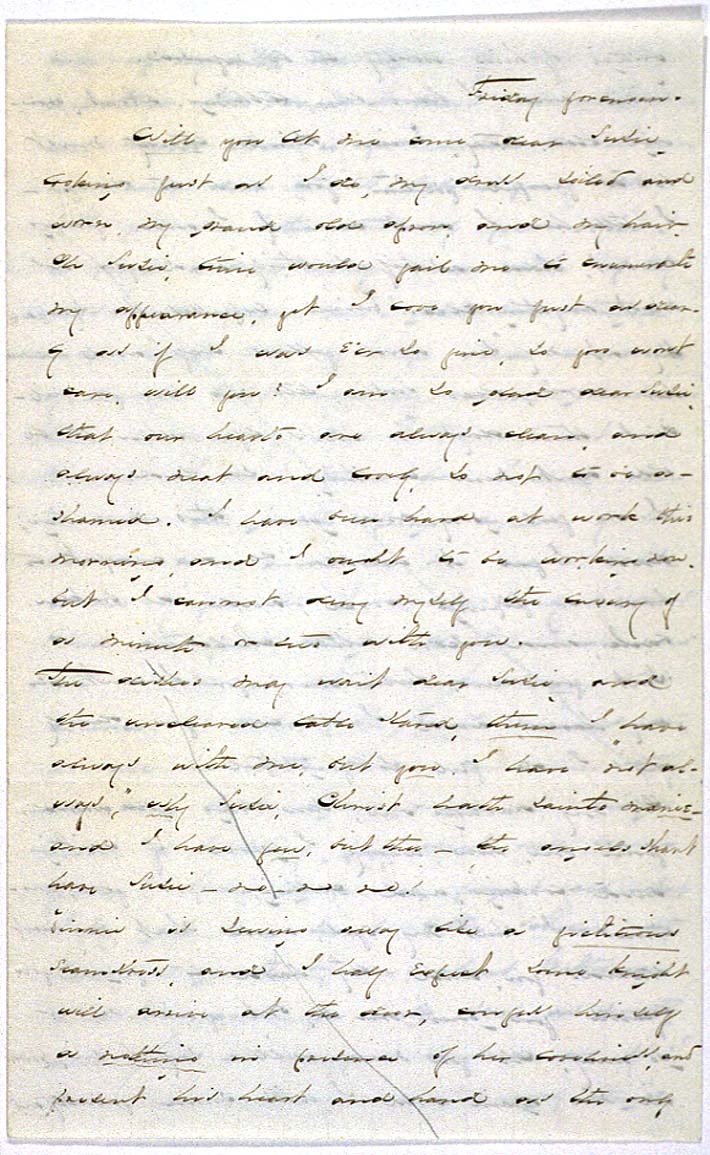 Friday forenoon.
Will you let me come dear Susie
looking just as I do, my dress soiled and
worn, my grand old apron, and my hair
Oh Susie, time would fail me to enumerate
my appearance, yet I love you just as dear-
ly as if I was e'er so fine, so you wont
care, will you? I am so glad dear Susie
that our hearts are always clean, and
always neat and lovely, so not to be a-
shamed. I have been hard at work this
morning, and I ought to be working now.
but I cannot deny myself the luxury of
a minute or two with you.
The dishes may wait dear Susie and
the uncleared table stand, them I have
always with me, but you, I have "not al-
ways," why Susie, Christ hath saints manie-
and I have few, but thee - the angels shant
have Susie - no - no no!
Vinnie is sewing away like a fictitious
seamstress, and I half expect some knight
will arrive at the door, confess himself
a nothing in presence of her loveliness, and
present his heart and hand as the only